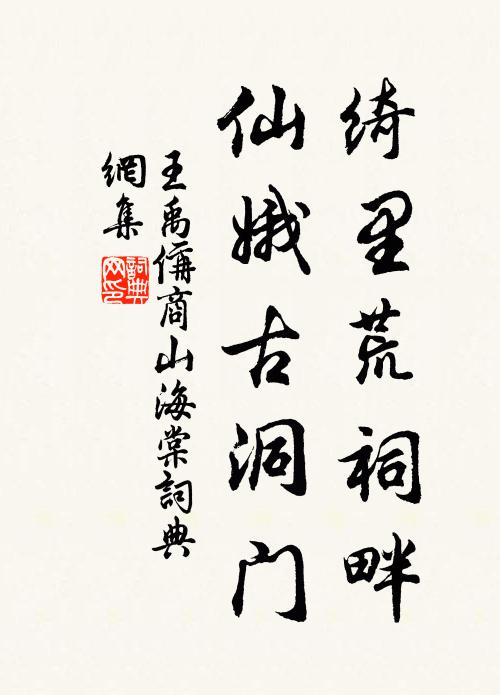 绮里荒祠畔
仙娥古洞门
王禹偁商山海棠詞典
網集
詞典
网印